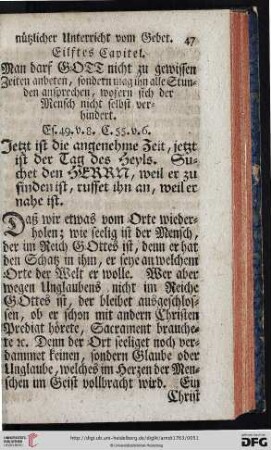 nützlicher Unterricht vom Gebet. 47
Eilftes Capitel.
Man darf GOTT nicht zu gewissen
Zeiten anbeten, sondern mag ihn alle Stun-
den ansprechen, wofern sich der
Mensch nicht selbst ver-
hindert.
Es. 49. v. 8. C. 55. v. 6.
Jetzt ist die angenehme Zeit, jetzt
ist der Tag des Heyls. Su-
chet den HERRN, weil er zu
finden ist, ruffet ihn an, weil er
nahe ist.
Daß wir etwas vom Orte wieder-
holen; wie seelig ist der Mensch,
der im Reich GOttes ist, denn er hat
den Schatz in ihm, er seye an welchem
Orte der Welt er wolle. Wer aber
wegen Unglaubens nicht im Reiche
GOttes ist, der bleibet ausgeschlos-
sen, ob er schon mit andern Christen
Predigt hörete, Sacrament brauche-
te ꝛc. Denn der Ort seeliget noch ver-
dammet keinen, sondern Glaube oder
Unglaube, welches im Herzen der Men-
schen im Geist vollbracht wird. Ein
Christ
UNIVERSITÄTS-
BIBLIOTHEK
HEIDELBERG
http://digi.ub.uni-heidelberg.de/diglit/arndt1763/0051
© Universitätsbibliothek Heidelberg